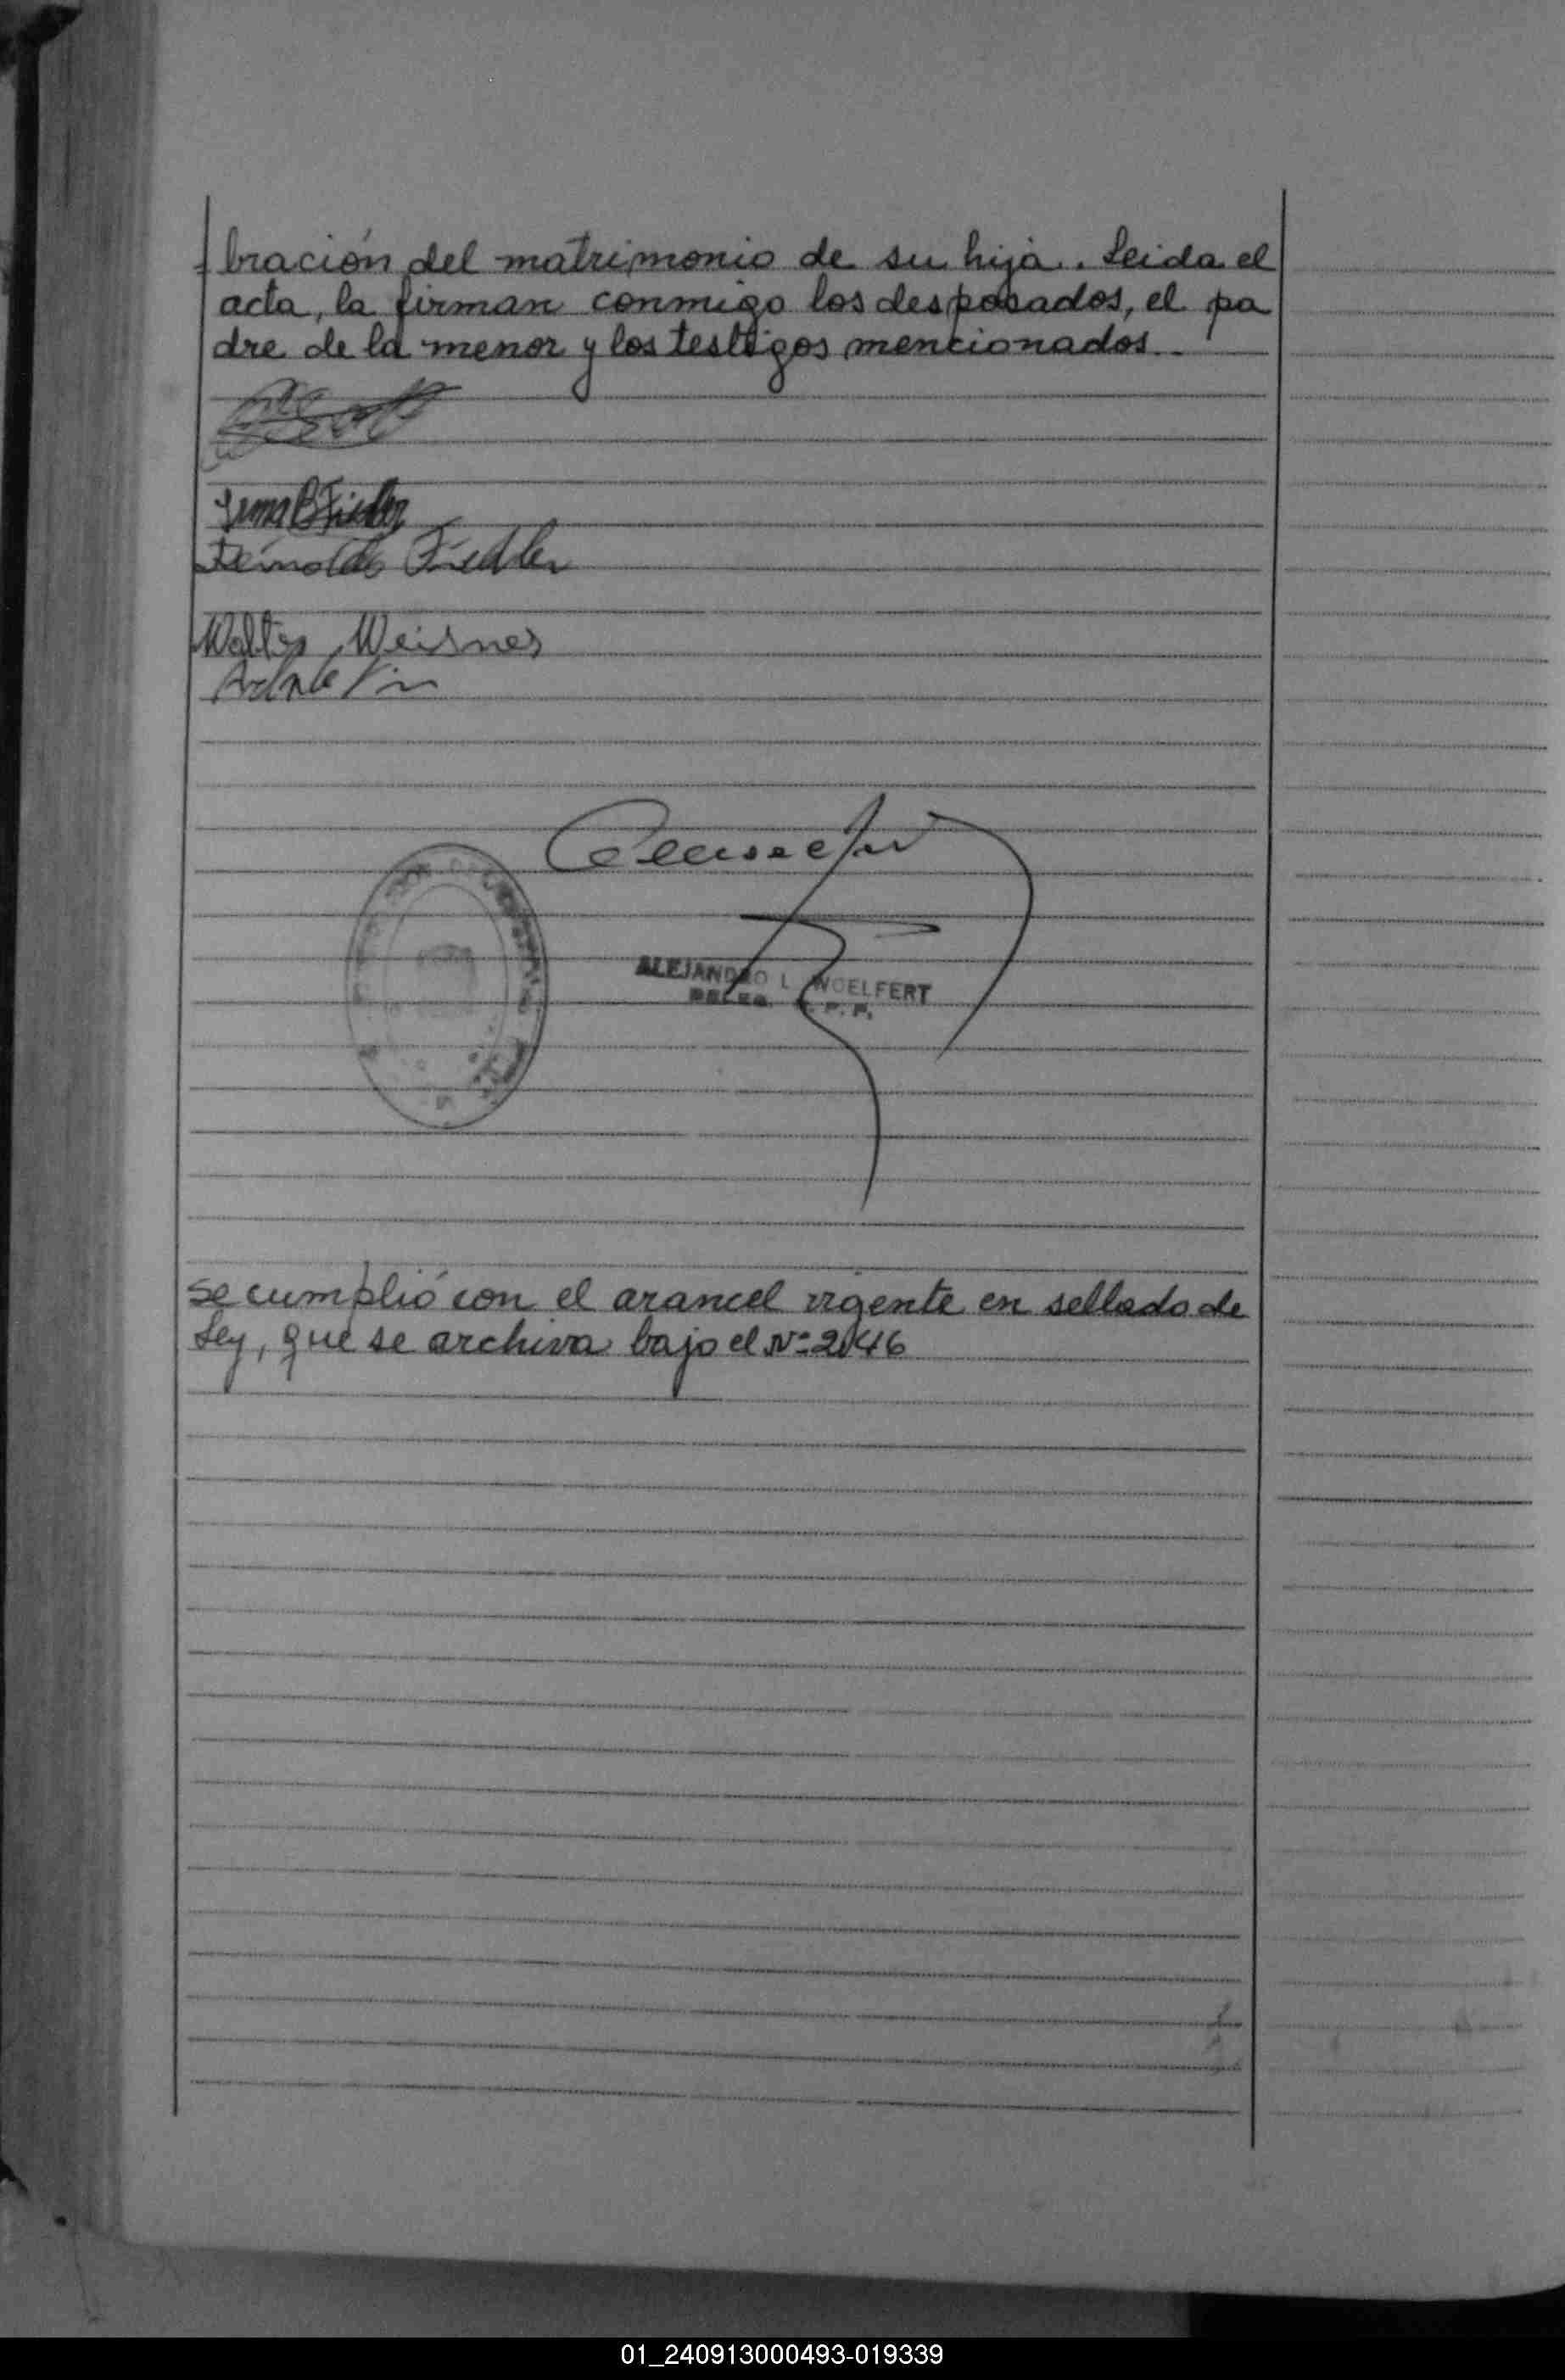 bración del matrimonio de su hija. Leida el
acta, la firman conmigo los desposados, el pa
dre de la menor y los testigos mencionados.-
Irma B Fiedler
Reinoldo Fiedler
Walter Weisner
ALEJANDRO L. WOELFERT
DELEG. R. P. P.
se cumplió con el arancel vigente en sellado de
Ley, que se archiva bajo el Nº 2046
01_240913000493-019339